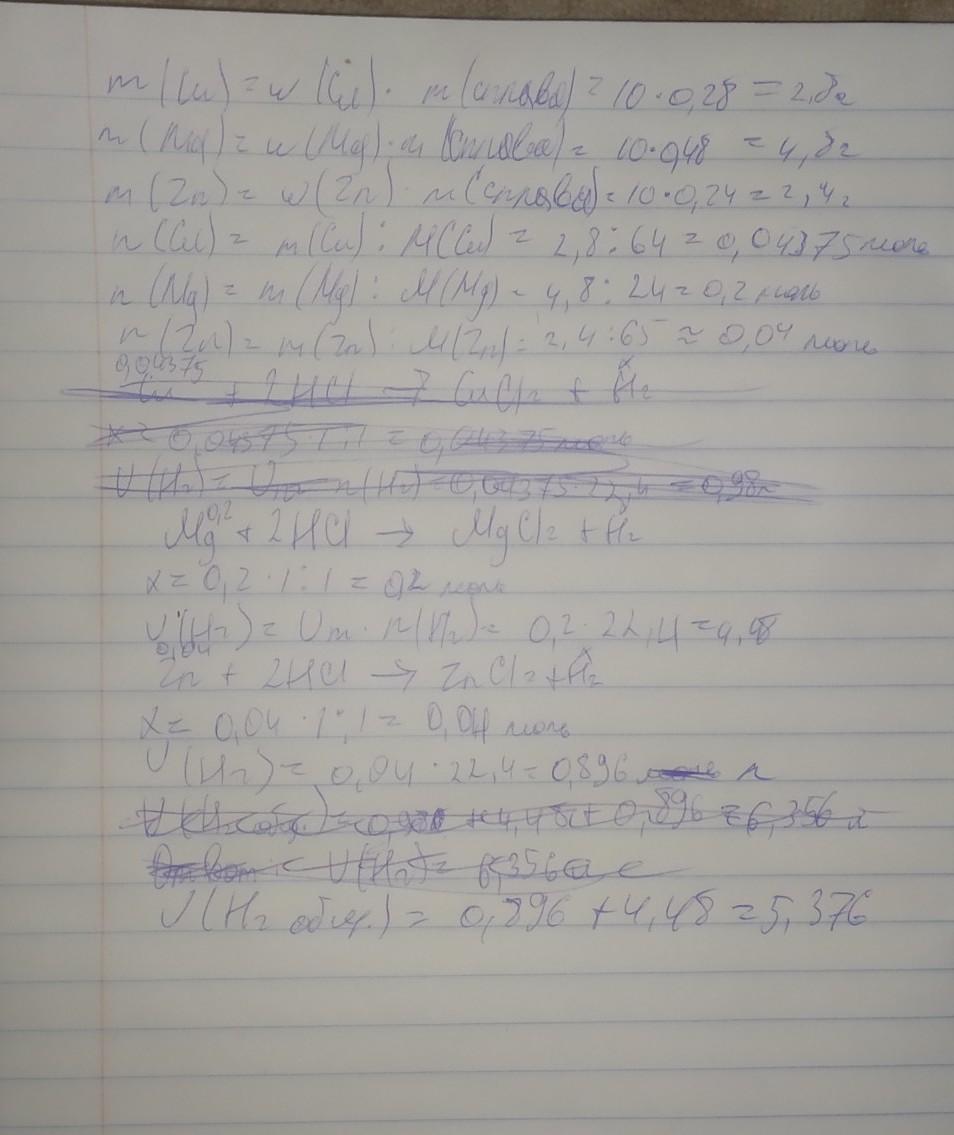 m(Cu) = w(Cu) · m(сплава) = 10 · 0,28 = 2,8г
m(Mg) = w(Mg) · m(сплава) = 10·0,48 = 4,8г
m(Zn) = w(Zn) · m(сплава) = 10·0,24 = 2,4г
n(Cu) = m(Cu) : M(Cu) = 2,8 : 64 = 0,04375 моль
n(Mg) = m(Mg) : M(Mg) = 4,8 : 24 = 0,2 моль
n(Zn) = m(Zn) : M(Zn) = 2,4 : 65 ≈ 0,04 моль
0,04375
Cu + 2HCl → CuCl2 + H2
x = 0,04375 · 1 : 1 = 0,04375 моль
V(H2) = Vm · n(H2) = 0,04375 · 22,4 = 0,98л
0,2
Mg + 2HCl → MgCl2 + H2
x = 0,2 · 1 : 1 = 0,2 моль
V(H2) = Vm · n(H2) = 0,2 · 22,4 = 4,48
0,04 x
Zn + 2HCl → ZnCl2 + H2
x = 0,04 · 1 : 1 = 0,04 моль
V(H2) = 0,04 · 22,4 = 0,896 моль л
+ 4,48 + 0,896 = 6,356 л
Ответ: V(H2) = 6,356
V(H2 общ.) = 0,896 + 4,48 = 5,376